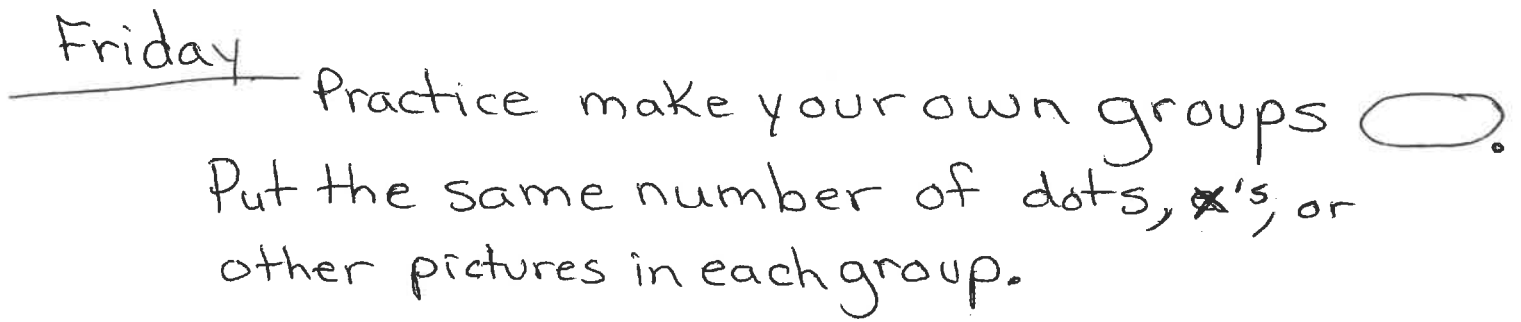 Friday
Practice make your own groups .
Put the same number of dots, x's, or
other pictures in each group.